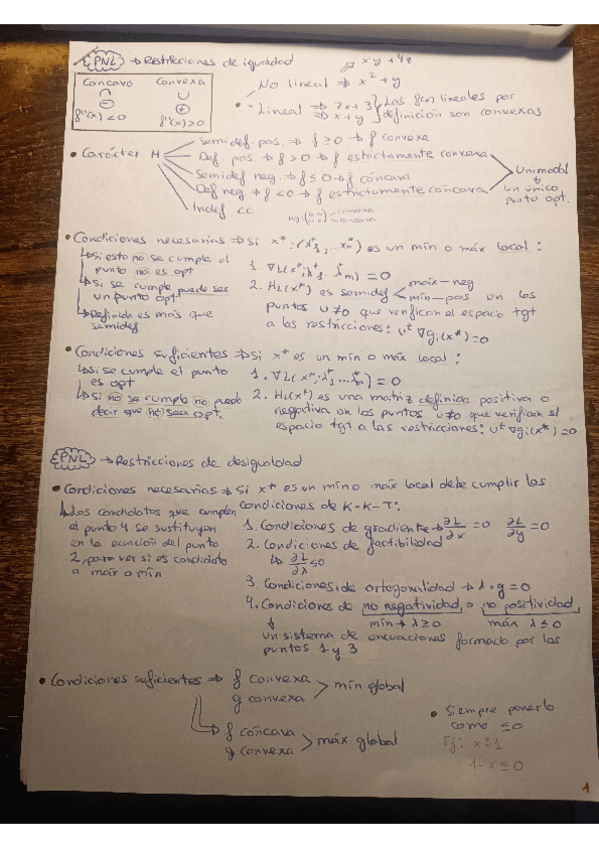 PNL → Restricciones de igualdad
Concavo Convexa
∩ ∪
⊖ ⊕
f''(x)<0 f''(x)>0
xy + 4z
No lineal ⇒ x² + y
• - Lineal ⇒ 2x+3 } Las f(x) lineales por
⇒ x+y } definición son convexas
• Carácter H
Semidef. pos. → f ≥ 0 → f convexa
Def. pos. → f > 0 → f estrictamente convexa
Semidef neg. → f ≤ 0 → f cóncava
Def neg → f < 0 → f estrictamente cóncava
Indef cc
Unimodal
↓
un único
punto opt.
• Condiciones necesarias ⇒ Si x* = (x₁*, ... xₙ*) es un mín o máx local :
↳ si esto no se cumple el
punto no es opt
↳ si se cumple puede ser
un punto opt.
↳ Definida es más que
semidef
1. ∇L(x*; λ₁* ... λm*) = 0
2. HL(x*) es semidef < máx - neg
mín - pos en los
puntos u ≠ 0 que verifican el espacio tgt
a las restricciones: uᵗ ∇gi(x*) = 0
• Condiciones suficientes ⇒ Si x* es un mín o máx local :
↳ si se cumple el punto
es opt
↳ si no se cumple no puedo
decir que no sea opt.
1. ∇L(x*; λ₁*, ... λm*) = 0
2. HL(x*) es una matriz definida positiva o
negativa en los puntos u ≠ 0 que verifican el
espacio tgt a las restricciones: uᵗ ∇gi(x*) = 0
PNL → Restricciones de desigualdad
• Condiciones necesarias ⇒ Si x* es un mín o máx local debe cumplir las
condiciones de K-K-T:
↳ Los candidatos que cumplen
el punto 4 se sustituyen
en la ecuación del punto
2, para ver si es candidato
a máx o mín
1. Condiciones de gradiente → ∂L/∂x = 0 ∂L/∂y = 0
2. Condiciones de factibilidad
↳ ∂L/∂λ ≤ 0
3. Condiciones de ortogonalidad → λ · g = 0
4. Condiciones de no negatividad, o no positividad,
mín → λ ≥ 0 máx λ ≤ 0
↓
un sistema de encuaciones formado por los
puntos 1 y 3
• Condiciones suficientes ⇒ f convexa
g convexa > mín global
→ f cóncava
g convexa > máx global
• Siempre ponerlo
como ≤ 0
Ej: x ≥ 1
1 - x ≤ 0
1